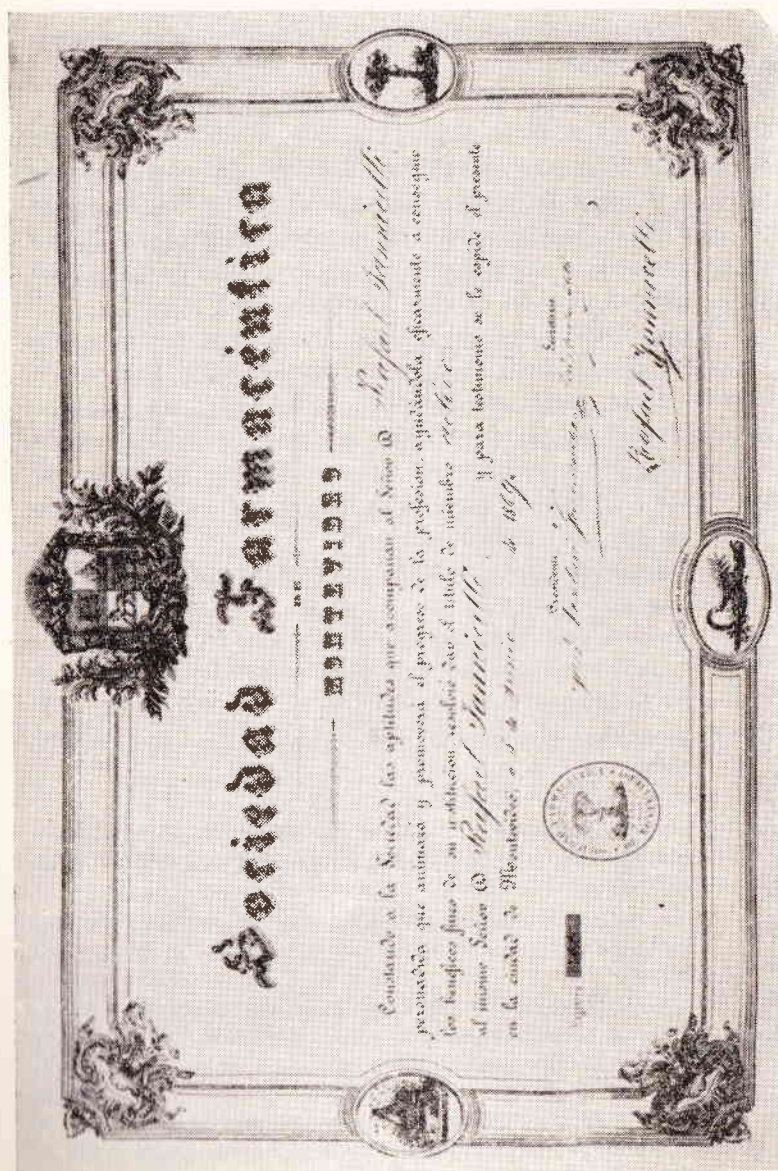 Sociedad Farmacéutica
DE
MONTEVIDEO
Constando a la Sociedad las aptitudes que acompañan al Señor D. Rafael Jannicelli
persuadida que animará y promoverá el progreso de la profesion, ayudándola eficazmente a conseguir
los benéficos fines de su institucion, resolvió dar el titulo de miembro activo
al mismo Señor D. Rafael Jannicelli y para testimonio se le espide el presente
en la ciudad de Montevideo, a 5 de de 1869
Presidente Secretario
Rafael Jannicelli